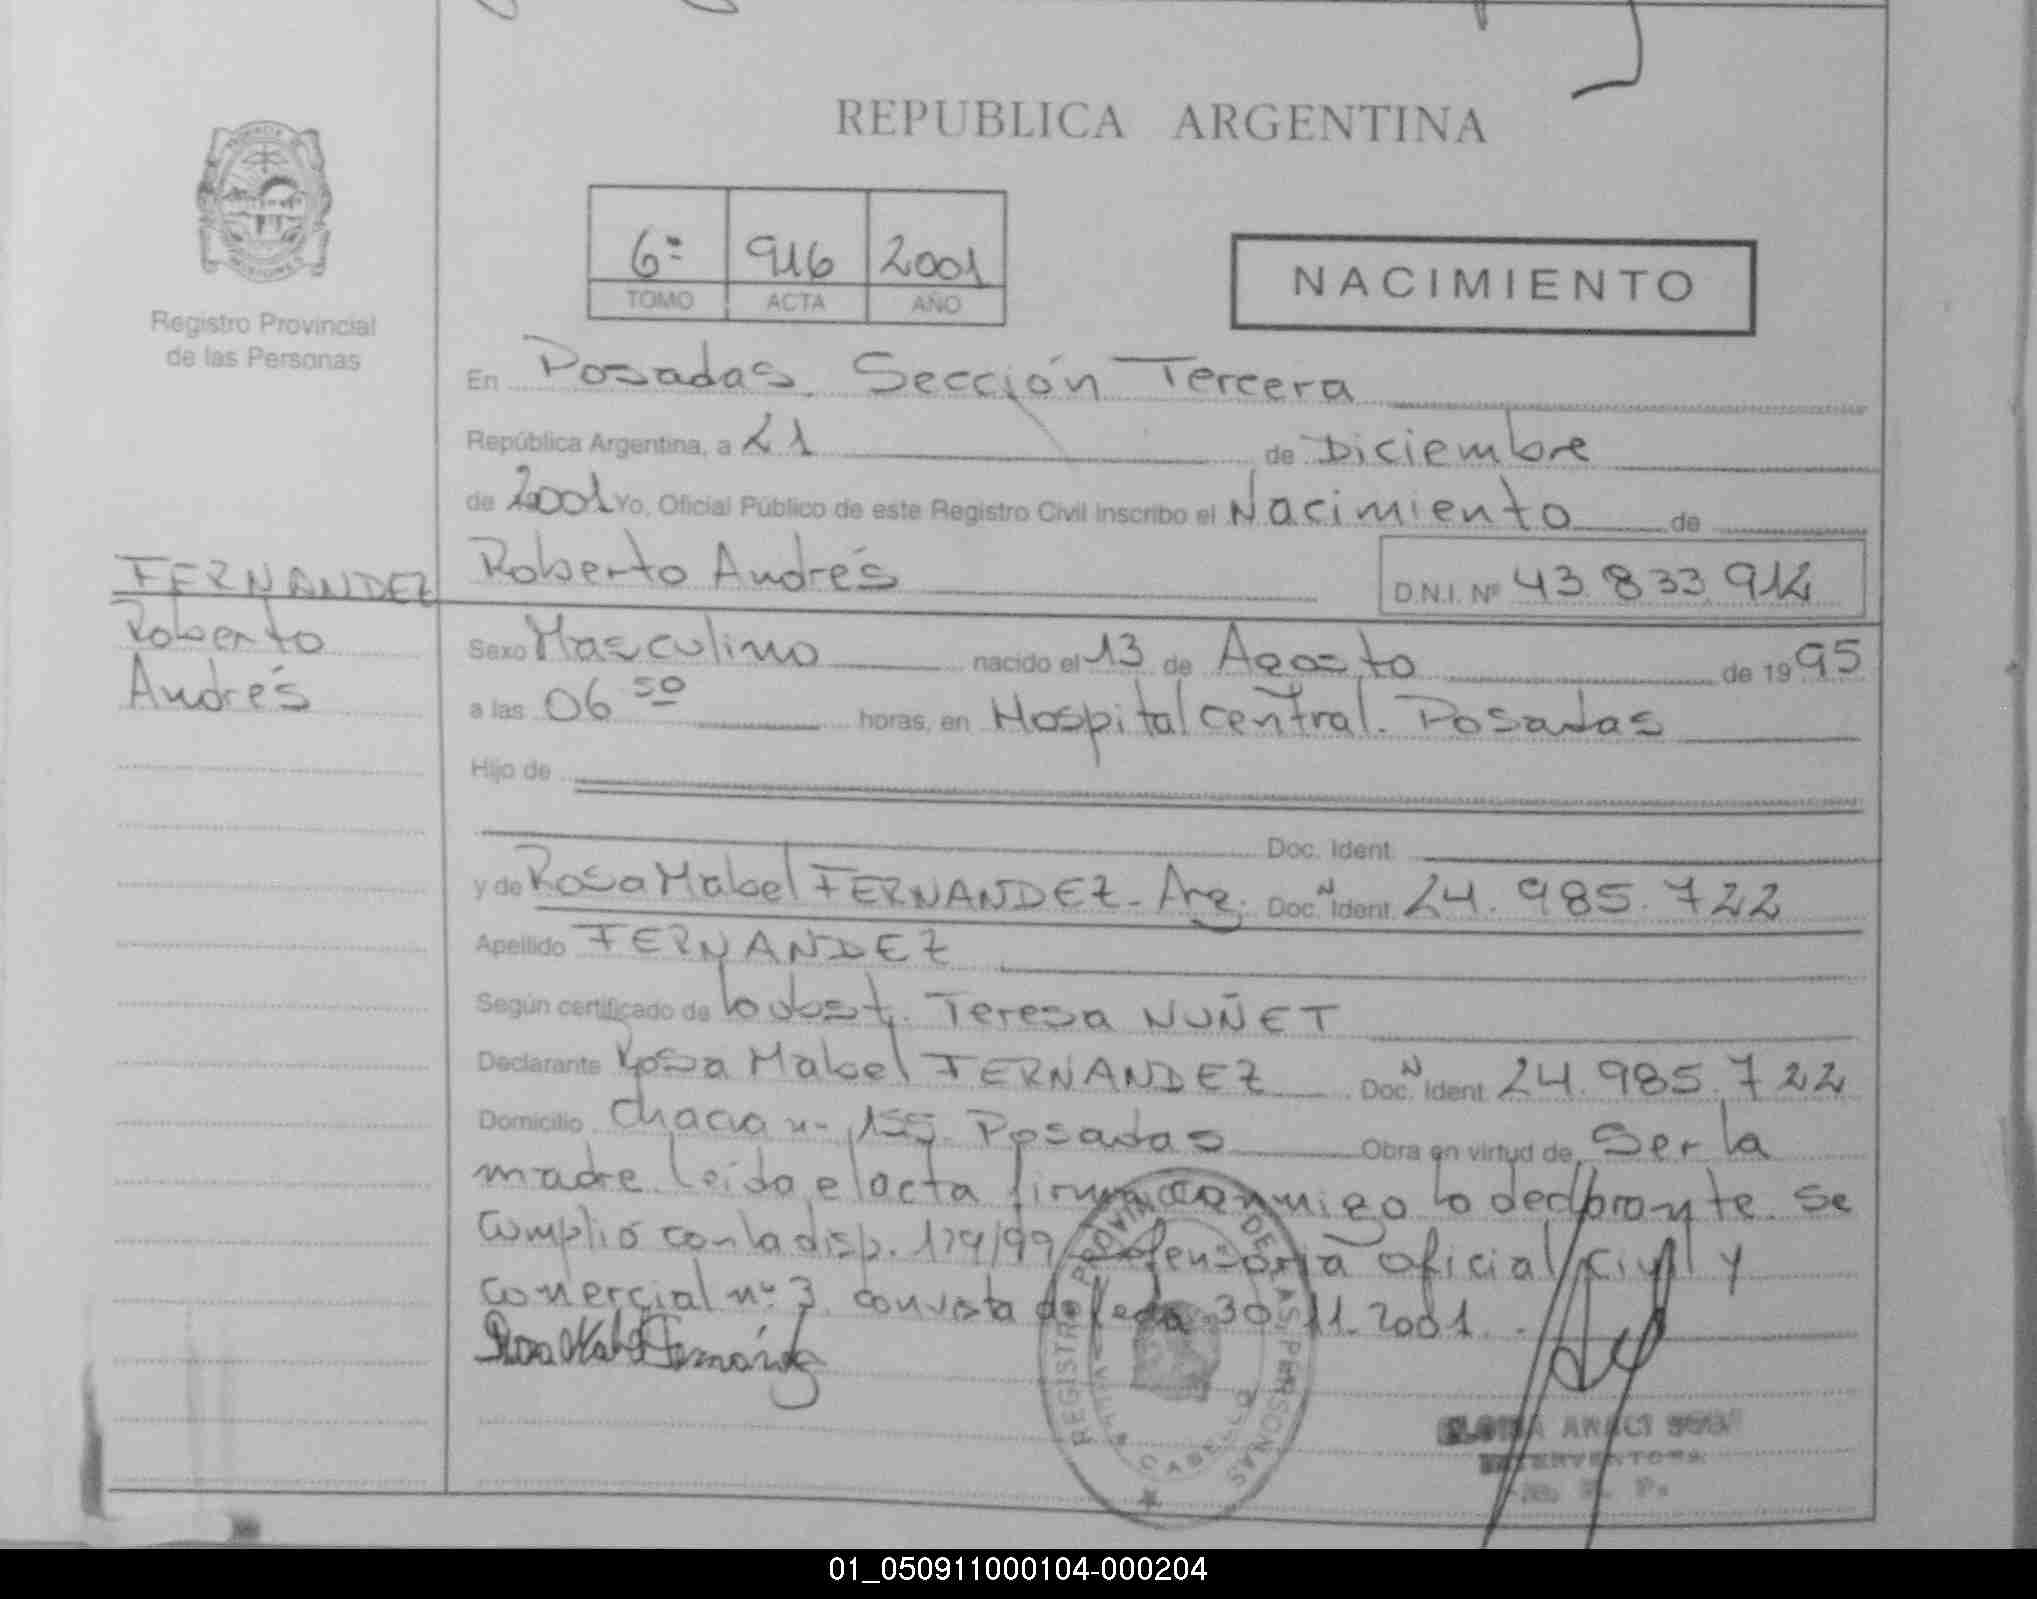 REPUBLICA ARGENTINA
6º 916 2001
TOMO ACTA AÑO
NACIMIENTO
Registro Provincial
de las Personas
En Posadas. Sección Tercera
República Argentina, a 21 de Diciembre
de 2001 Yo, Oficial Público de este Registro Civil inscribo el Nacimiento de
Roberto Andrés D.N.I. Nº 43.833.914
FERNANDEZ
Roberto
Andrés
Sexo Masculino nacido el 13 de Agosto de 1995
a las 06 50 horas, en Hospital central. Posadas
Hijo de
Doc. Ident.
y de Rosa Mabel FERNANDEZ - Arg. Doc. N Ident. 24.985.722
Apellido FERNANDEZ
Según certificado de la obst. Teresa NUÑET
Declarante Rosa Mabel FERNANDEZ Doc. N Ident. 24.985.722
Domicilio Chacra nº 155. Posadas Obra en virtud de Ser la
madre. Leída el acta firma conmigo la declarante. Se
cumplió con la disp. 179/99 defensoría oficial civil y
comercial nº 3. con vista de fecha 30.11.2001.
Rosa Mabel Fernández
REGISTRO PROVINCIAL DE LAS PERSONAS
CABELLO
INTERVENTORA
01_050911000104-000204